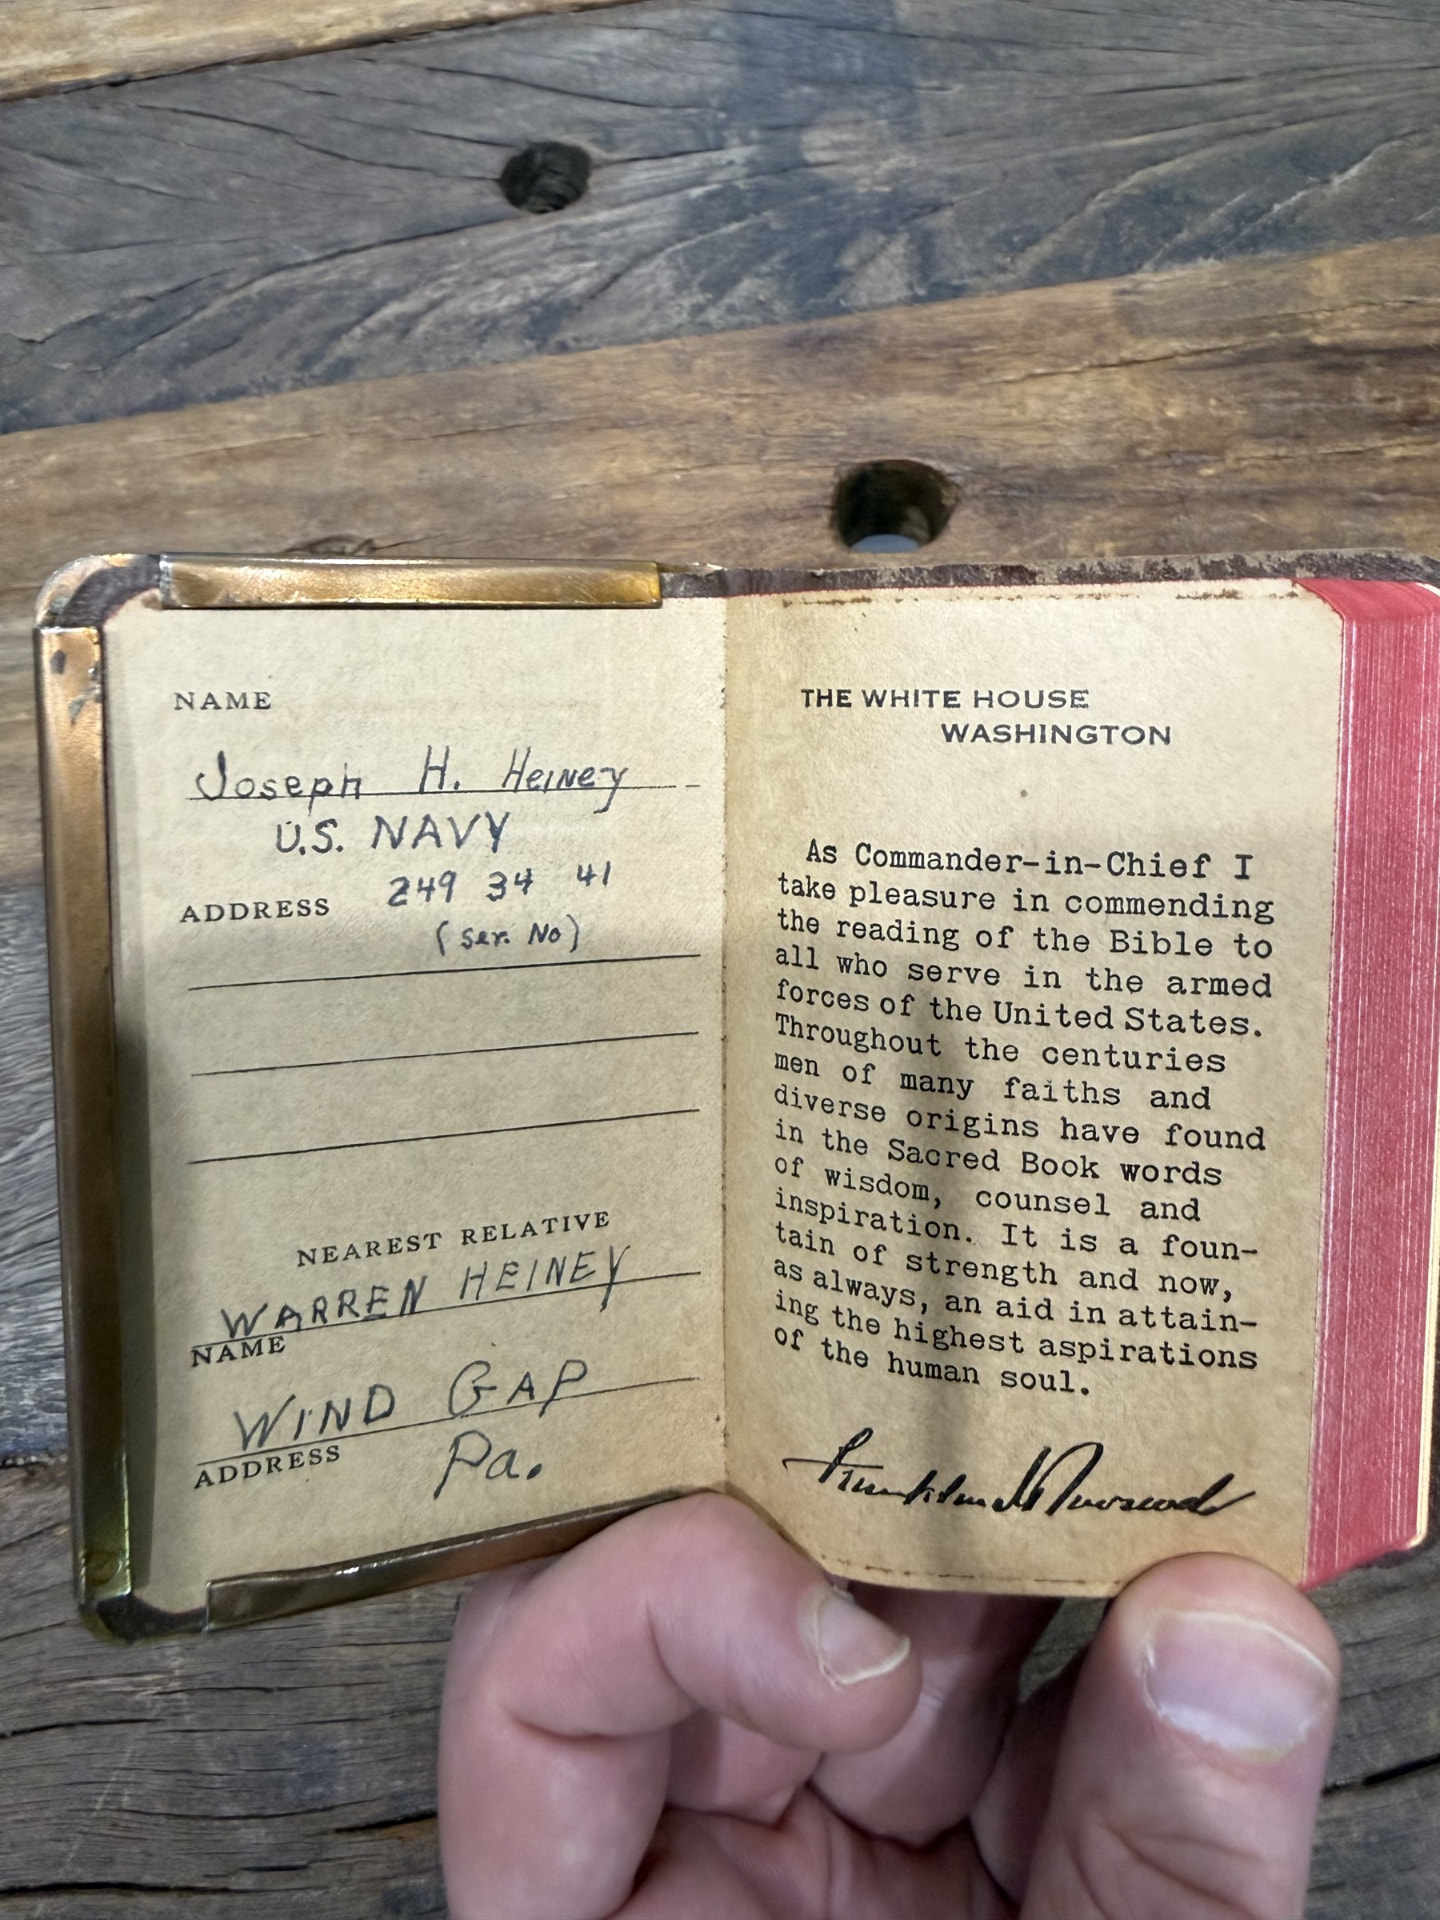 NAME
Joseph H. Heiney
U.S. NAVY
249 34 41
ADDRESS
(Ser. No)
NEAREST RELATIVE
WARREN HEINEY
NAME
WIND GAP
ADDRESS
Pa.
THE WHITE HOUSE
WASHINGTON
As Commander-in-Chief I
take pleasure in commending
the reading of the Bible to
all who serve in the armed
forces of the United States.
Throughout the centuries
men of many faiths and
diverse origins have found
in the Sacred Book words
of wisdom, counsel and
inspiration. It is a foun-
tain of strength and now,
as always, an aid in attain-
ing the highest aspirations
of the human soul.
Franklin D Roosevelt